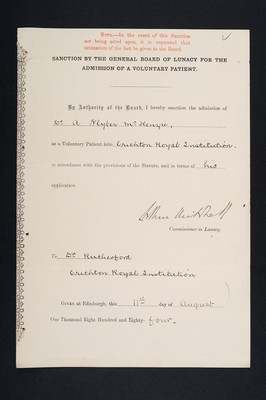 NOTE.—In the event of this Sanction
not being acted upon, it is requested that
intimation of the fact be given to the Board.
SANCTION BY THE GENERAL BOARD OF LUNACY FOR THE
ADMISSION OF A VOLUNTARY PATIENT.
By Authority of the Board, I hereby sanction the admission of
Dr. A McKenzie,
as a Voluntary Patient into Crichton Royal Institution.
in accordance with the provisions of the Statute, and in terms of his
application.
Arthur Mitchell
Commissioner in Lunacy.
To Dr. Rutherford
Crichton Royal Institution
Given at Edinburgh, this 11th day of August
One Thousand Eight Hundred and Eighty-four.